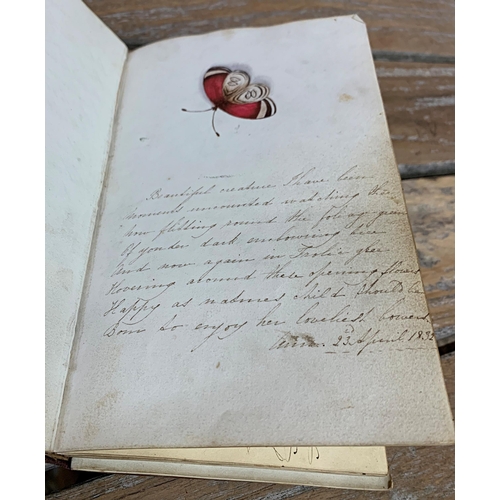 Beautiful creature I have been
moments uncounted watching thee
now flitting round the foliage green
Of yonder dark embowring tree
And now again in frolic glee
Hovering around these opening flowers
Happy as natures child should be
Born to enjoy her loveliest bowers
23d April 1832